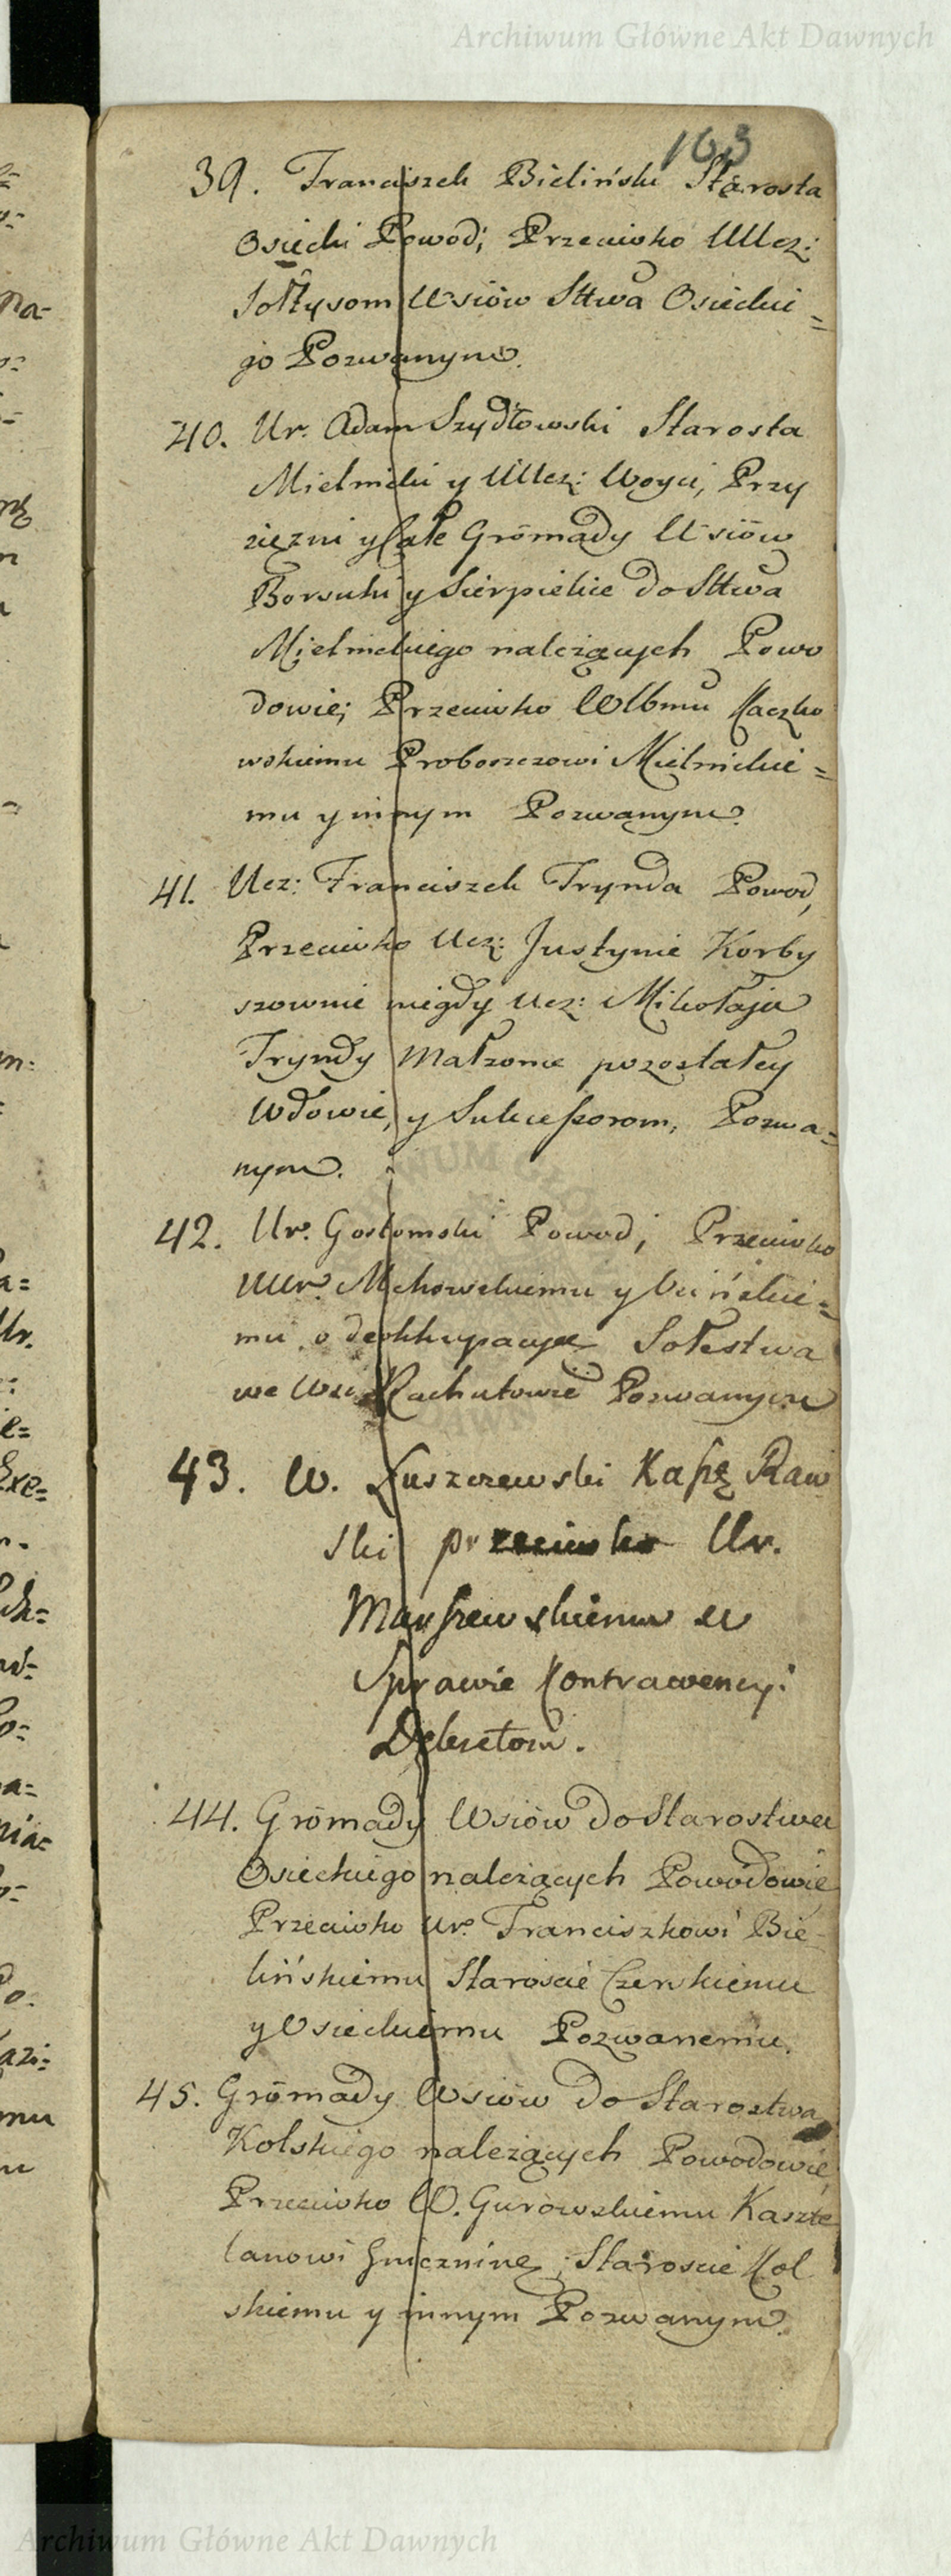 Archiwum Główne Akt Dawnych
163
39. Franciszek Bieliński Starosta
Osiecki Powod; Przeciwko UUcz:
Sołtysom Wsiów Sttwa Osiecki=
go Pozwanym.
40. Ur. Adam Szydłowski Starosta
Mielnicki y UUcz: Woyci, Przy
siężni y Całe Grómady Wsiów
Borsuki y Sierpielice do Sttwa
Mielnickiego należących Powo
dowie; Przeciwko WIbmu Kaczko
wskiemu Proboszczowi Mielnickie=
mu y innym Pozwanym.
41. Ucz: Franciszek Trynda Powod,
Przeciwko Ucz: Justynie Korby
szownie niegdy Ucz: Mikołaja
Tryndy Małżonce pozostałey
Wdowie, y Sukcessorom, Pozwa=
nym.
42. Ur. Gostomski Powod; Przeciwko
UUr. Mchowskiemu y
mu o deokkupacyą Sołestwa
we Wsi Rachutowie Pozwanym
43. W. Łuszczewski Kasz Raw
ski przeciwko Ur.
Marszewskiemu w
Sprawie Kontrawencyi
Dekretom.
44. Grómady Wsiów do Starostwa
Osieckiego należących Powodowie
Przeciwko Ur. Franciszkowi Bie-
lińskiemu Staroscie Czerskiemu
y Osieckiemu Pozwanemu.
45. Grómady Wsiów do Starostwa
Kolskiego należących Powodowie,
Przeciwko W. Gurowskiemu Kaszte
lanowi Gnieznin: Staroscie Kol
skiemu y innym Pozwanym.
Archiwum Główne Akt Dawnych